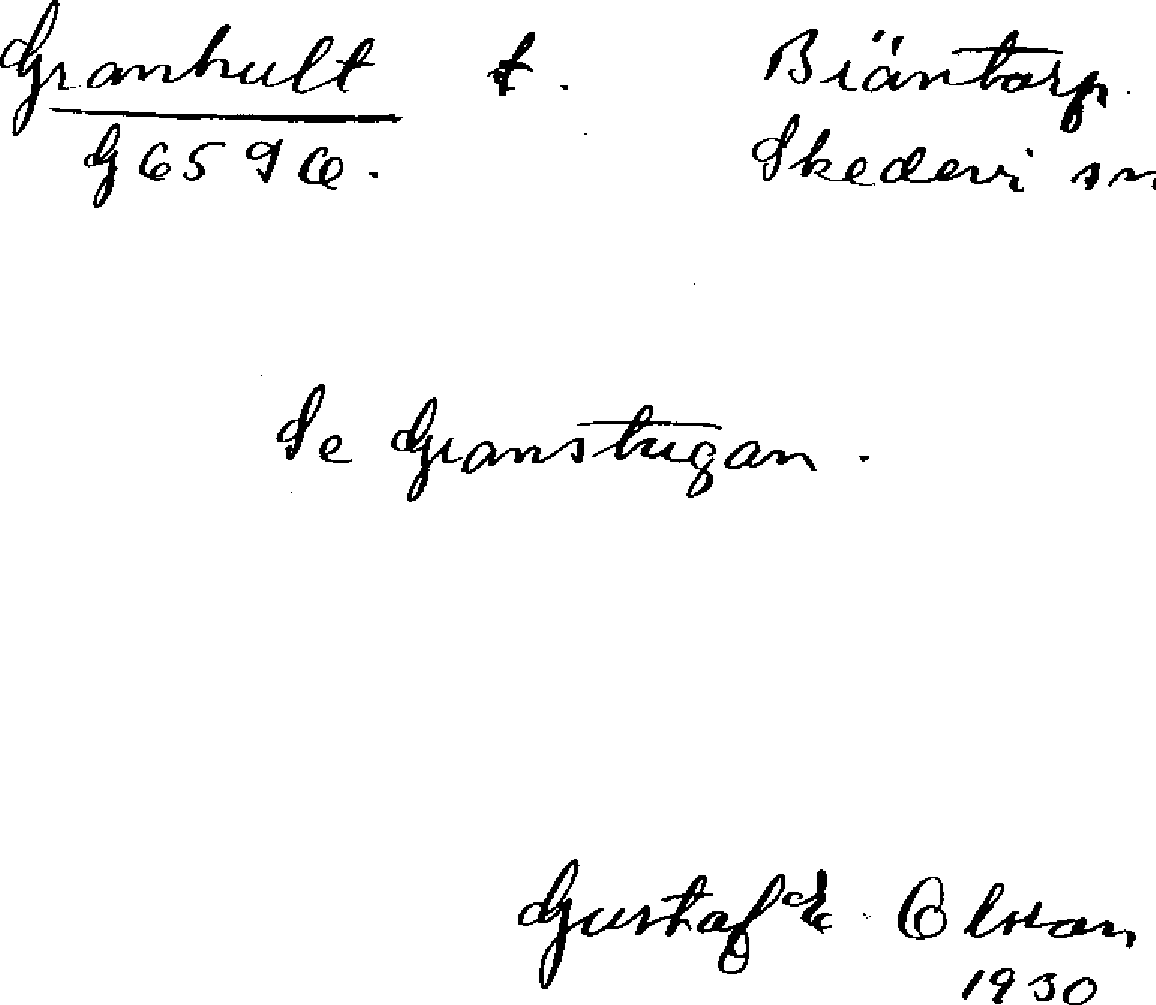 Granhult t. Bräntorp.
G 65 9 a.
Skedevi sn
Se Granstugan.
Gustaf E. Olsson
1930